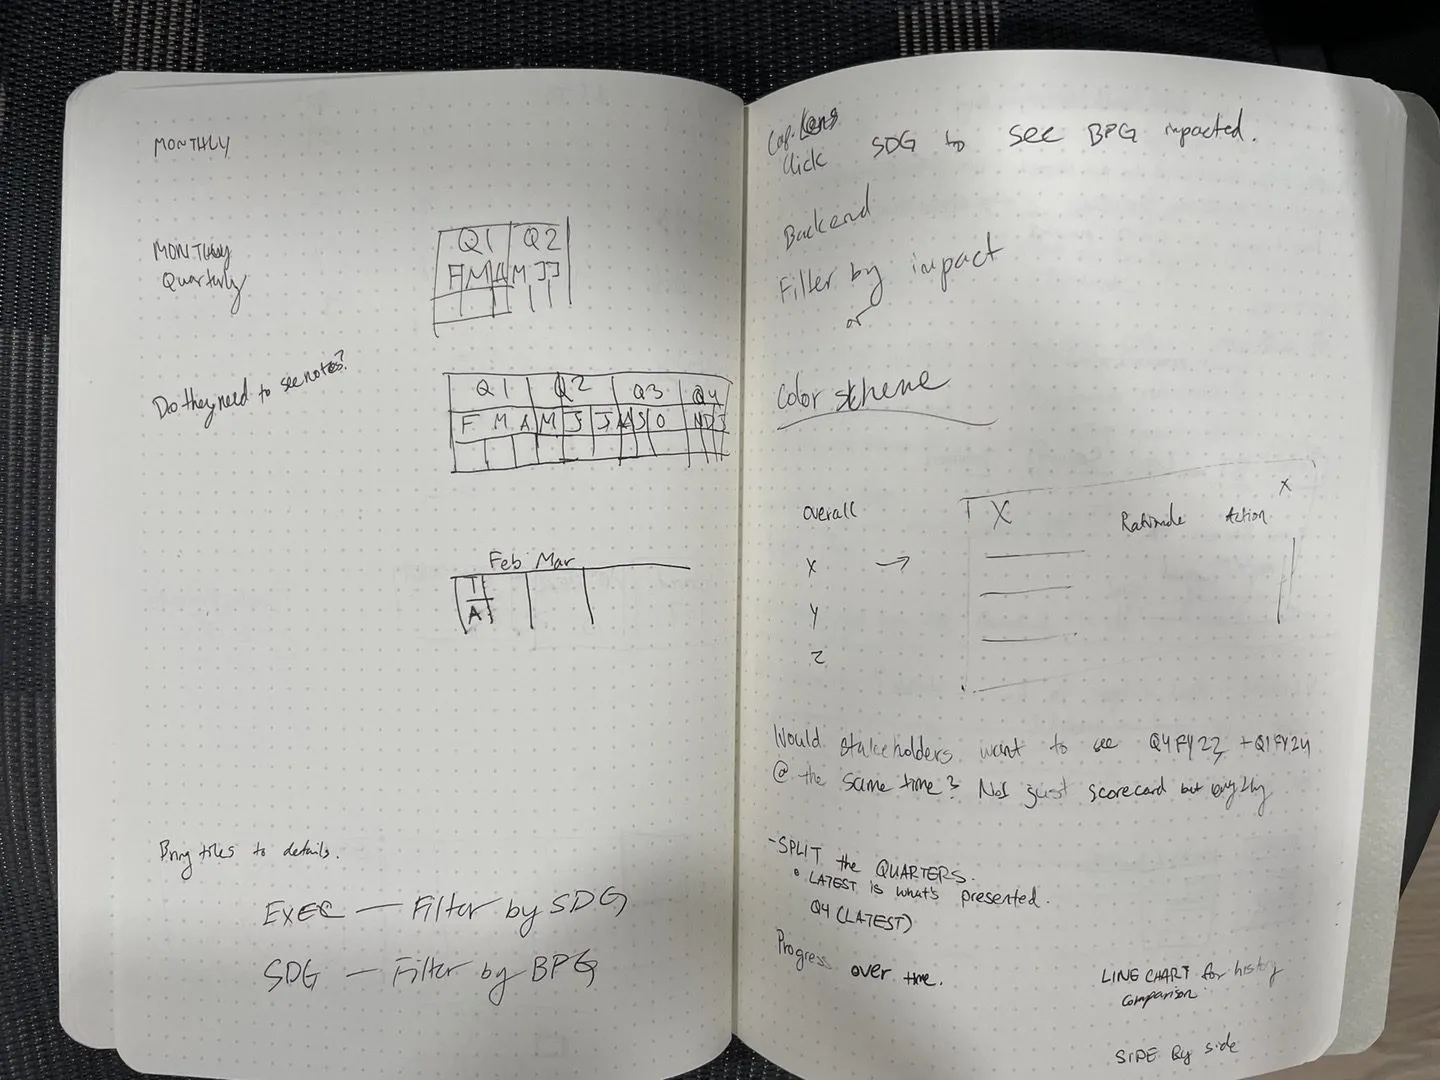 MONTHLY
MONTHLY
Quarterly
Q1 Q2
F M A M J J
Do they need to see notes?
Q1 Q2 Q3 Q4
F M A M J J A S O N D J
Feb Mar
T
A
Bring tiles to details.
EXEC — Filter by SDG
SDG — Filter by BPG
Cap. Lens
Click SDG to see BPG impacted.
Backend
Filter by impact
or
Color scheme
overall
X
X Rationale Action
X →
Y
Z
Would stakeholders want to see Q4FY23 + Q1FY24
@ the same time? Not just scorecard but
- SPLIT the QUARTERS.
• LATEST is what's presented.
Q4 (LATEST)
Progress over time.
LINE CHART for history
comparison
SIDE By side